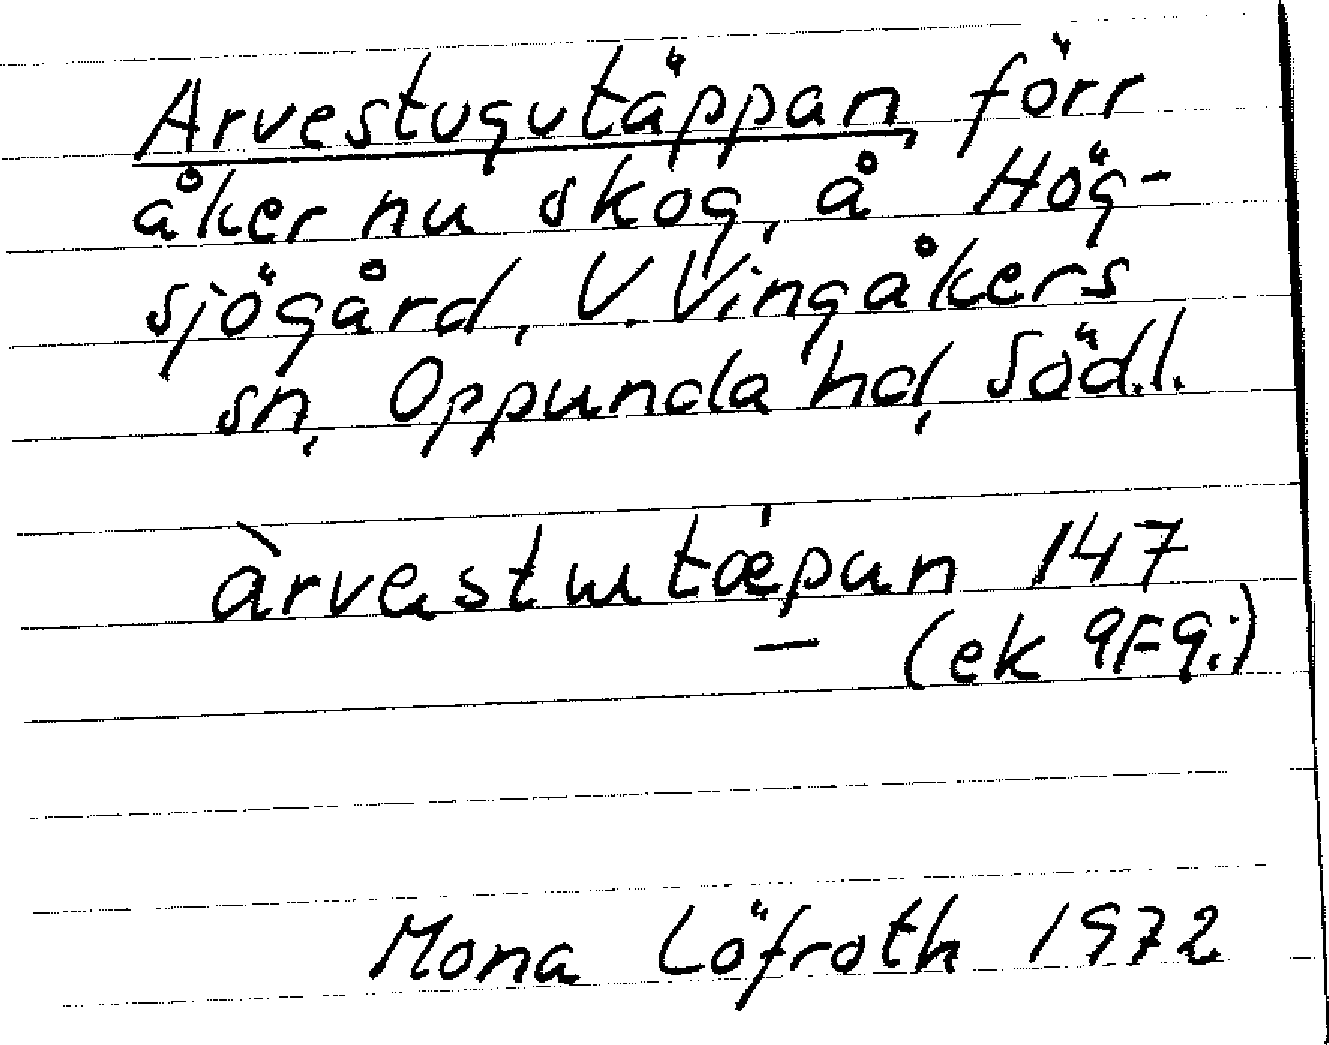 Arvestugutäppan, förr
åker nu skog, å Hög-
sjögård, V. Vingåkers
sn, Oppunda hd, Södl.
àrvestuɯtæ̍pan 147
— (ek 9F9:)
Mona Löfroth 1972